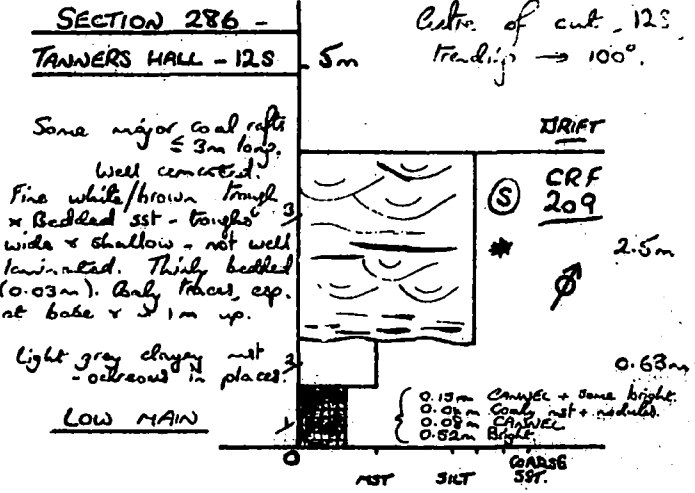 SECTION 286 -
TANNERS HALL - 12S
5m
Centre of cut - 12S
trending → 100°.
DRIFT
Some major coal rafts
≤ 3m long.
Well cemented.
Fine white/brown trough
x Bedded sst - troughs
wide & shallow - not well
laminated. Thinly bedded
(0.03m). Coaly traces, esp.
at base & 1m up.
3
S
CRF
209
*
2.5m
Light grey clayey mst
- ochreous in places.
2
0.63m
LOW MAIN
1
0.15m CANNEL + some bright.
Coaly mst + nodules.
0.08m CANNEL
0.52m Bright.
0
MST SILT COARSE
SST.